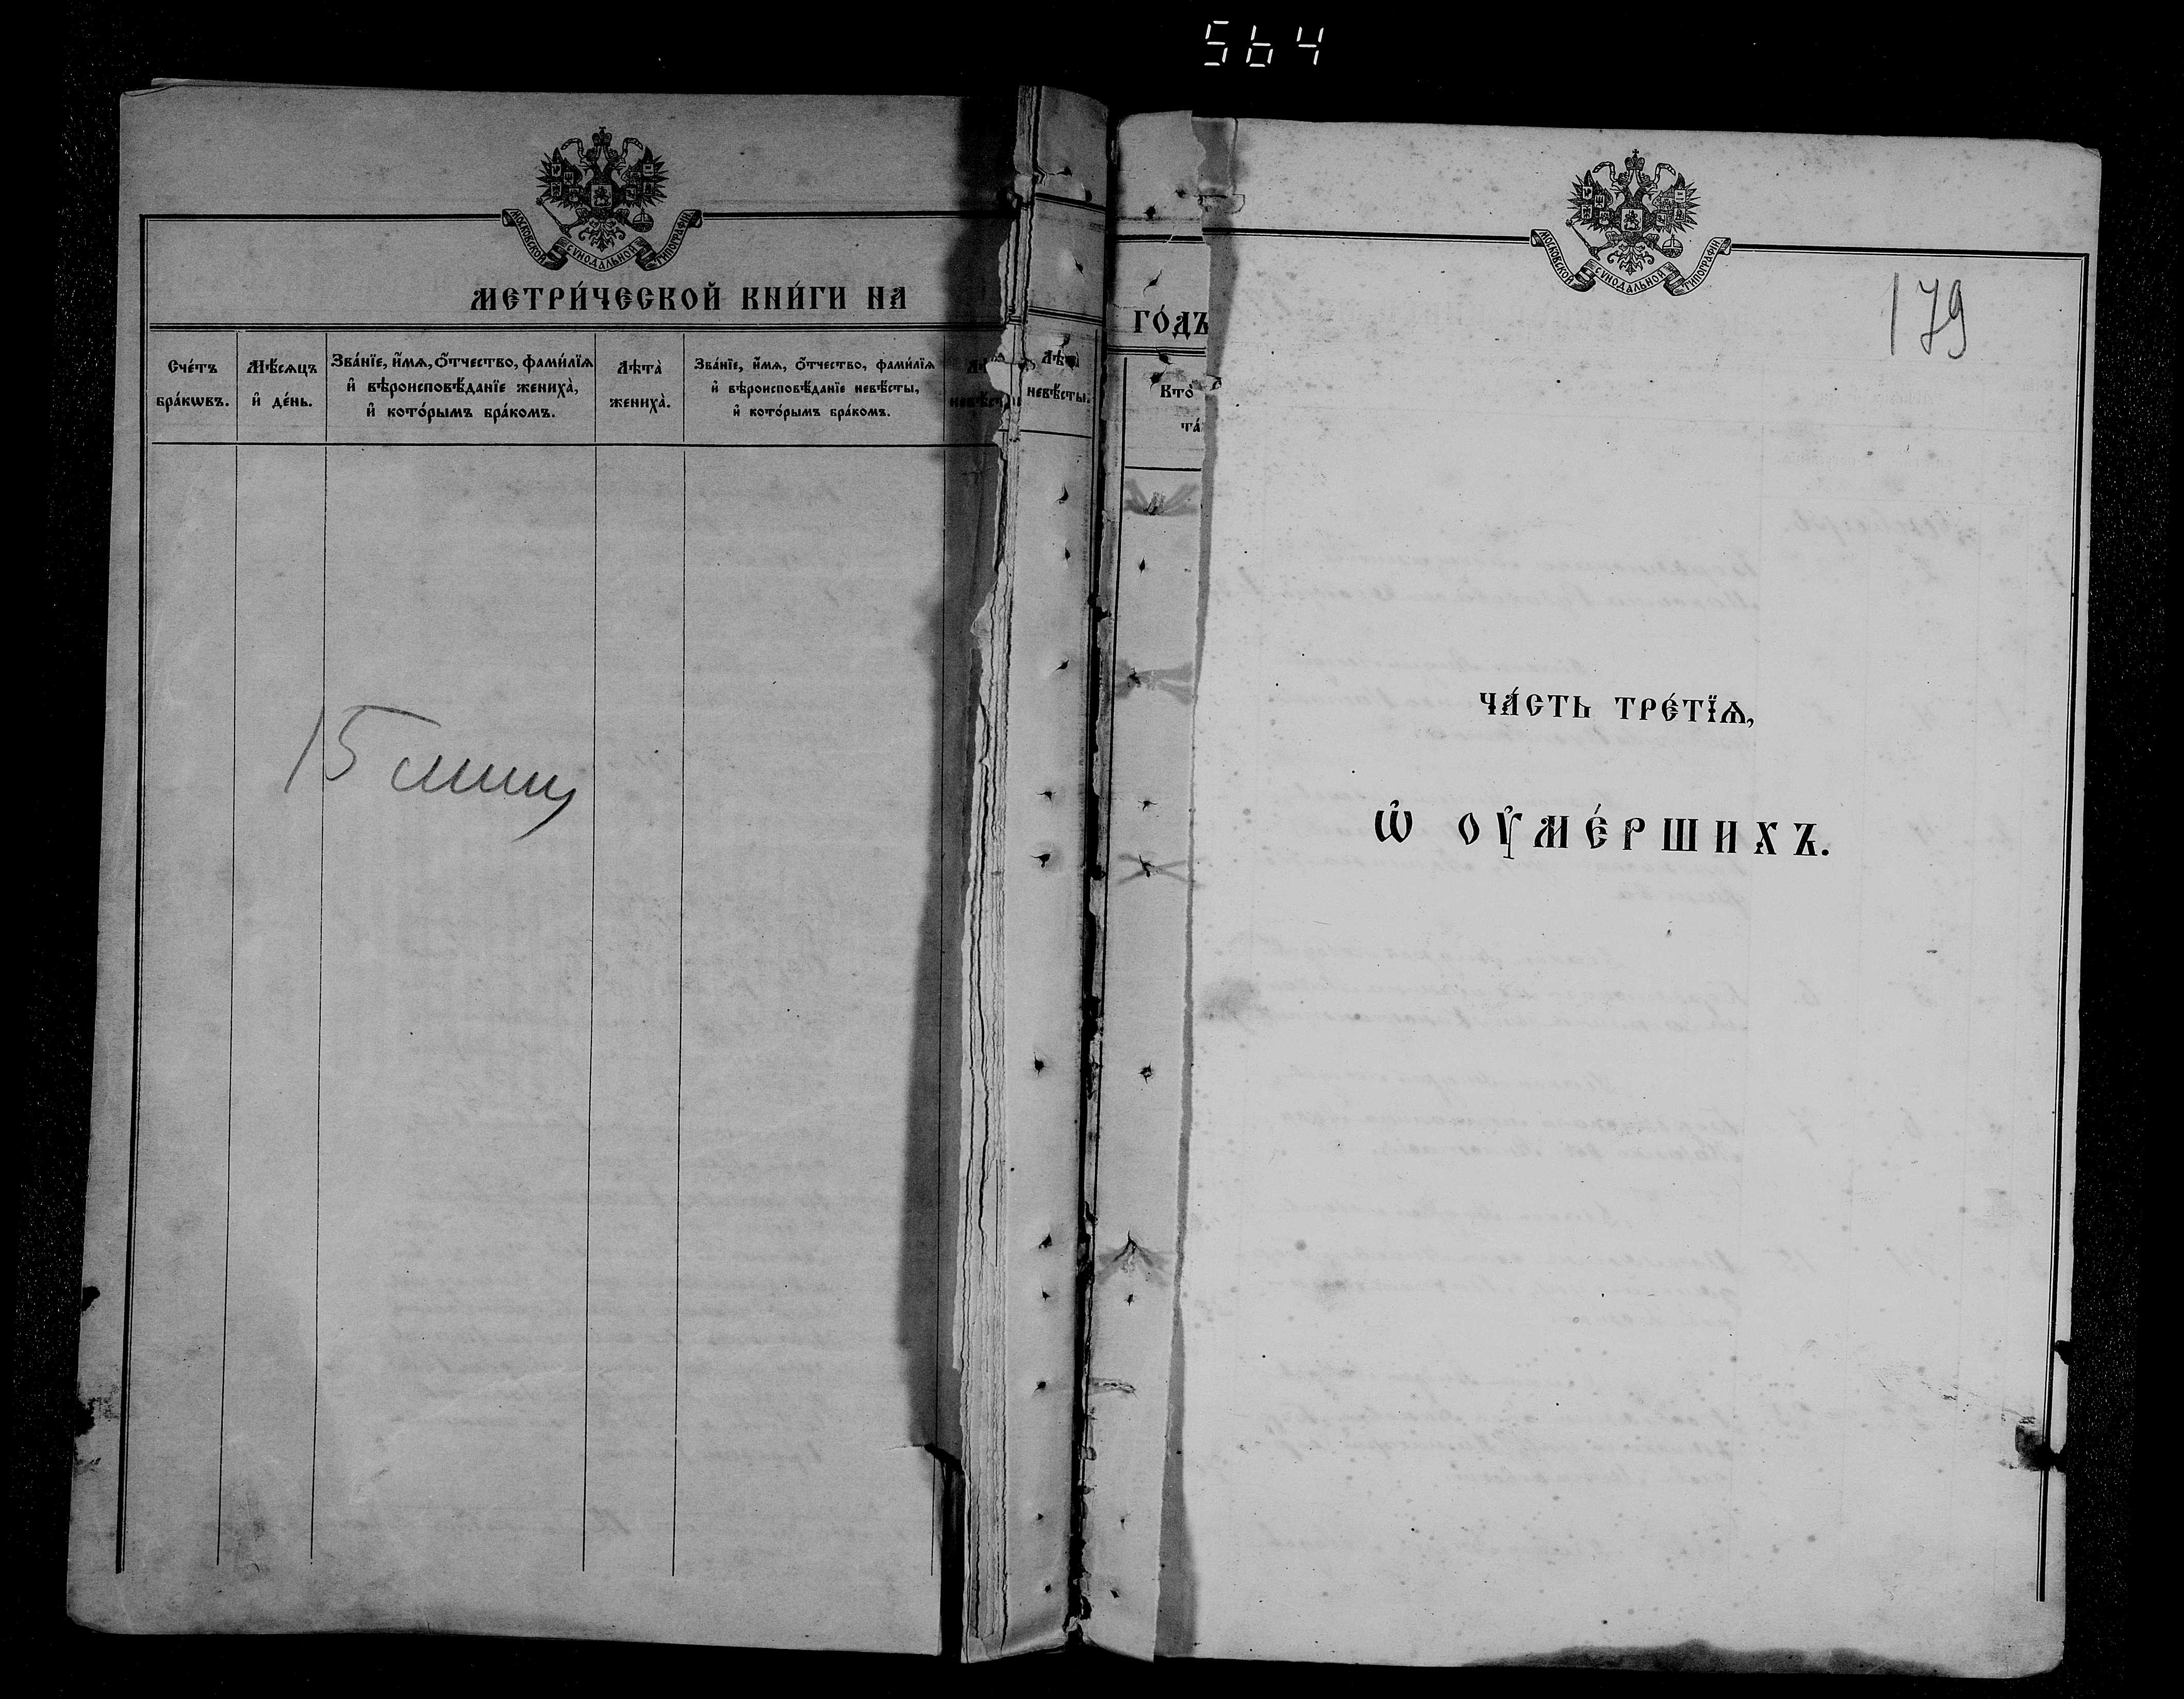 564
МОСКОВСКОЙ СѴНОДАЛЬНОЙ ТИПОГРАФІИ
МЕТРИ́ЧЕСКОЙ КНИ́ГИ НА
Сче́тъ
бра́кѡвъ.
Мѣ́сѧцъ
и҆ де́нь.
Зва́нїе, и҆́мѧ, ѻ҆́тчество, фами́лїѧ
и҆ вѣроисповѣ́данїе жениха̀,
и҆ кото́рымъ бра́комъ.
Лѣта̀
жениха̀.
Зва́нїе, и҆́мѧ, ѻ҆́тчество, фами́лїѧ
и҆ вѣроисповѣ́данїе невѣ́сты,
и҆ кото́рымъ бра́комъ.
Лѣта̀
невѣ́сты.
15
ГО́ДЪ
Кто̀
та́
МОСКОВСКОЙ СѴНОДАЛЬНОЙ ТИПОГРАФІИ
179
ЧА́СТЬ ТРЕ́ТЇѦ,
Ѡ҆ ОУ҆МЕ́РШИХЪ.